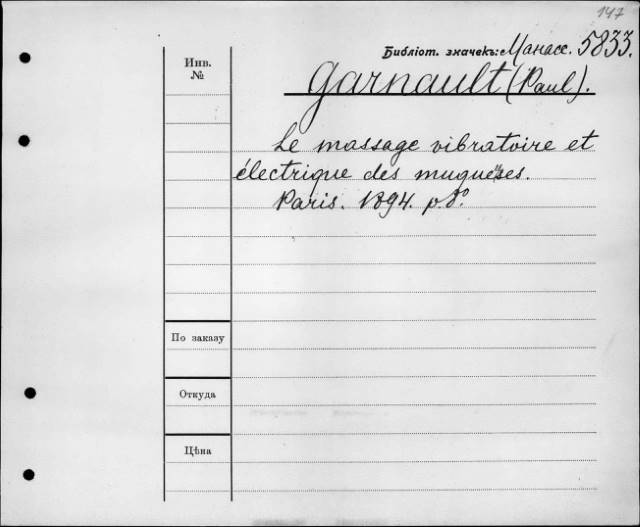 147
Библіот. значекъ: Манасс. 5833.
Инв.
№
Garnault (Paul).
Le massage vibratoire et
électrique des muqueuses.
Paris. 1894. p. 8°
По заказу
Откуда
Цѣна